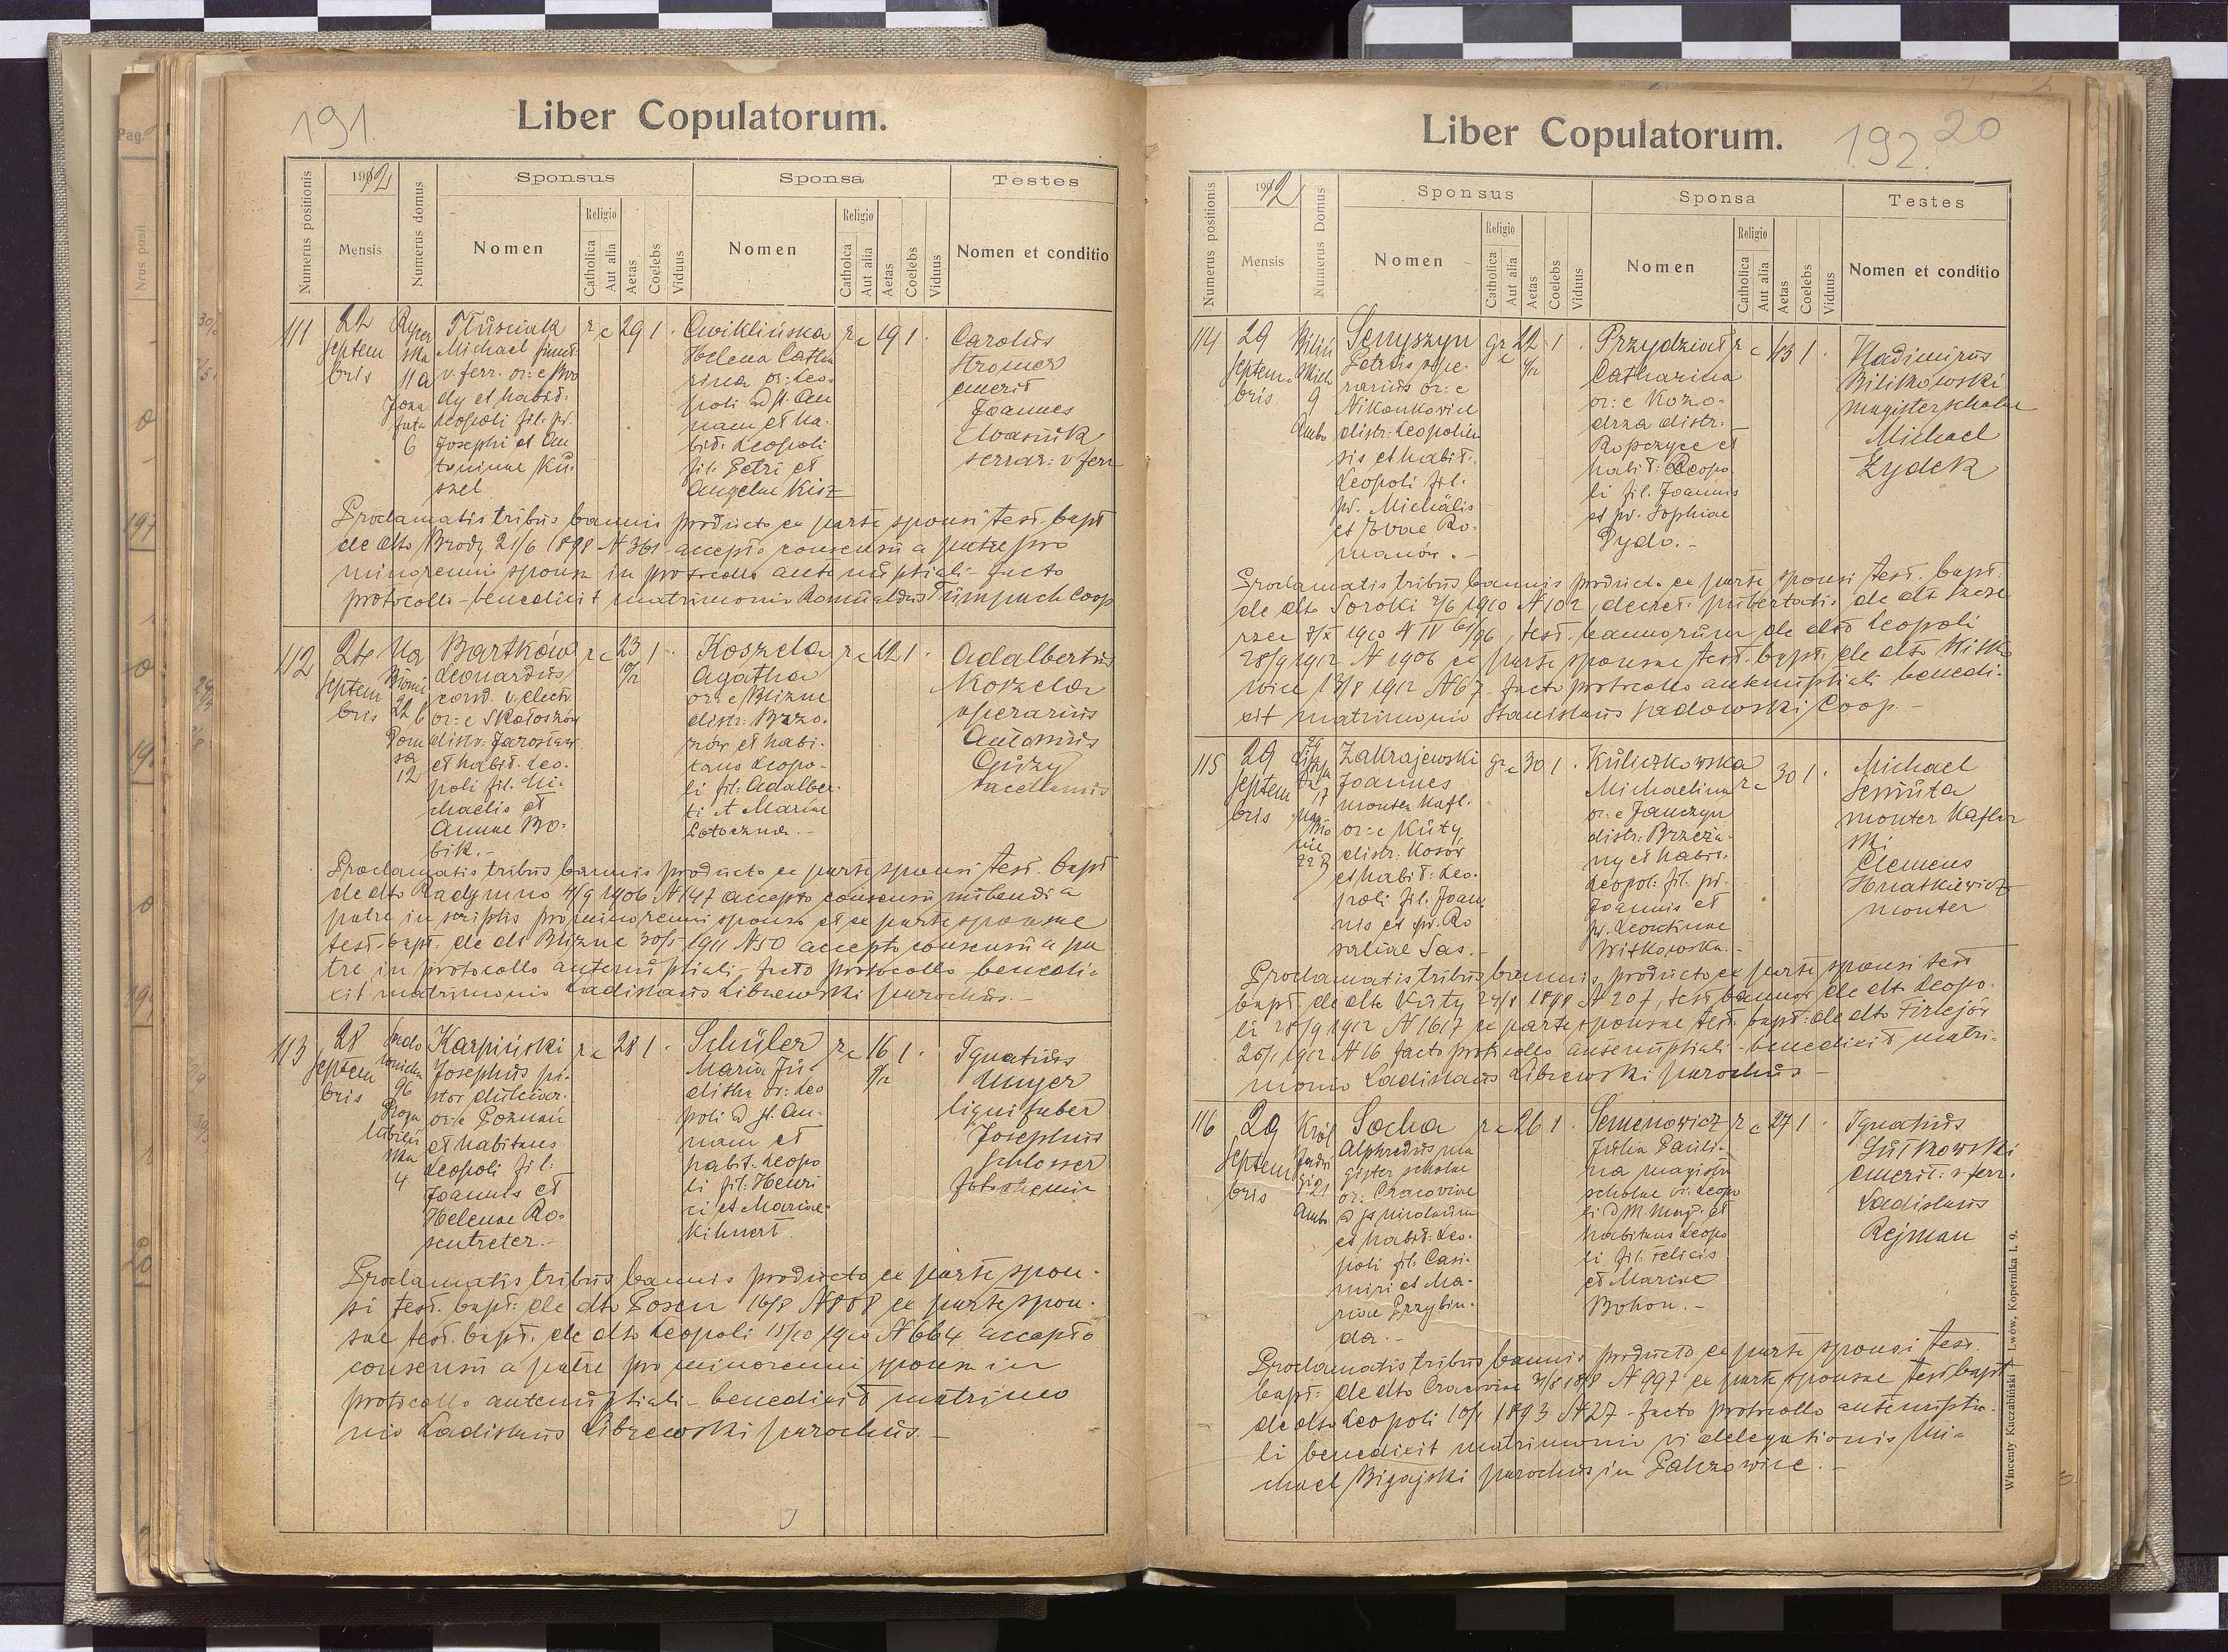 191.
Liber Copulatorum.
Numerus positionis
1912
Mensis
Numerus domus
Sponsus
Nomen
Religio
Catholica
Aut alia
Aetas
Coelebs
Viduus
Sponsa
Nomen
Religio
Catholica
Aut alia
Aetas
Coelebs
Viduus
Testes
Nomen et conditio
111
22
septem
bris
11a
6
Tłuściak
Michael
v. ferr. or: e Bro
dy et habit.
Leopoli fil. pr.
Josephi et An
toninae Ku
szel
rc
29
1
Cwiklińska
Helena Catha
rina or: Leo-
poli ad st. An
nam et ha-
bit: Leopoli
fil. Petri et
Angelae Kisz
rc
19
1
Carolus
Stromer
emerit
Joannes
Iwasiuk
serrar: v. ferr
Proclamatis tribus bannis producto ex parte sponsi test. bapt
de dto Brody 21/6 1898 N 361 accepto consensu a patre pro
minorenni sponsa in protocollo antenuptiali - facto
protocollo - benedixit matrimonio Romualdus Coop
112
24
septem
bris
22 b
12
Bartków
Leonardus
cond. v. electr.
or: e Skołoszów
distr. Jarosław
et habit. Leo-
poli fil. Mi-
chaelis et
Annae Bo-
bik.-
rc
23
10/12
1
Koszela
Agatha
or: e Blizne
distr: Brzo-
zów et habi-
tans Leopo-
li fil: Adalber
ti et Mariae
Łotoczna.-
rc
22
1
Adalbertus
Koszela
operarius
Antonius
Guzy
Proclamatis tribus bannis producto ex parte sponsi test. bapt
de dto Radymno 4/9 1906 N 147 accepto consensu nubendi a
patre in scriptis pro minorenni sponso et ex parte sponsae
test. bapt. de dt Blizne 30/5 1911 N 50 accepto consensu a pa
tre in protocollo antenuptiali, facto protocollo benedi-
xit matrimonio Ladislaus Librewski parochus.-
113
28
septem
bris
96
4
Karpiński
Josephus pi-
stor dulciar.
or: e Poznań
et habitans
Leopoli fil:
Joannis et
Helenae Ro-
sentreter.-
rc
28
1
Schüler
Maria Ju-
ditha or: Leo
poli ad st. An-
nam et
habit. Leopo
li fil: Henri
ci et Mariae
Kihnert
rc
16
9/12
1
Ignatius
Mayer
lignifaber
Josephus
Schlosser
Proclamatis tribus bannis producto ex parte spon-
si test. bapt: de dto Posen 16/8 N 808 ex parte spon-
sae test. bapt. de dto Leopoli 18/10 1910 N 664 accepto
consensu a patre pro minorenni sponsa in
protocollo antenuptiali - benedixit matrimo
nio Ladislaus Librewski parochus.-
192.
20
Liber Copulatorum.
Numerus positionis
1912
Mensis
Numerus Domus
Sponsus
Nomen
Religio
Catholica
Aut alia
Aetas
Coelebs
Viduus
Sponsa
Nomen
Religio
Catholica
Aut alia
Aetas
Coelebs
Viduus
Testes
Nomen et conditio
114
29
septem-
bris
9
Ambo
Senyszyn
Petrus ope-
rarius or: e
Nikonkowice
distr: Leopolien
sis et habit:
Leopoli fil.
pr. Michaelis
et Evae Ro-
manów.-
gr c
22
1
Przydział
Catharina
or: e Kozo-
drza distr.
Ropczyce et
habit: Leopo
li fil. Joannis
et pr. Sophiae
Pydo.-
rc
43
1
Wladimirus
Bilikowski
magister scholae
Michael
Żydek
Proclamatis tribus bannis producto ex parte sponsi test. bapt.
de dto Soroki 2/6 1910 N 102, decret. pubertatis de dt Szcze
rzec 8/X 1910 N IV 61/96, test. bannorum de dto Leopoli
28/9 1912 N 1906 ex parte sponsae test. bapt: de dto Witko
wice 13/8 1912 N 67 - facto protocollo antenuptiali benedi-
xit matrimonio Stanislaus Sadowski Coop.-
115
29
septem
bris
17
22 B
Zakrajewski
Joannes
monter kafl.
or: e Kuty
distr: Kosów
et habit: Leo-
poli fil. Joan
nis et pr. Ro
saliae Sas.-
gr c
30
1
Kuliczkowska
Michaelina
or: e Janczyn
distr: Brzeża-
ny et habit.
Leopoli fil. pr.
Joannis et
pr. Leontinae
Witkowska.-
rc
30
1
Michael
Semuta
monter kaflar
ski
Clemens
Hnatkiewicz
monter
Proclamatis tribus bannis, producto ex parte sponsi test
bapt. de dto Kuty 24/8 1898 N 207, test bannor. de dto Leopo-
li 28/9 1912 N 1617 ex parte sponsae test. bapt: de dto Firlejów
20/1 1912 N 16 facto protocollo antenuptiali - benedixit matri-
monio Ladislaus Librewski parochus -
116
29
septem
bris
Król
Jadwi
gi 21
Ambo
Socha
Alphredus ma
gister scholae
or: Cracoviae
et habit: Leo-
poli fil. Casi-
miri et Ma-
riae Przybin-
da.-
rc
26
1
Semenowicz
Julia Pauli-
na magistra
scholae or: Leopo
li ad M. Magd. et
habitans Leopo
li fil. Felicis
et Mariae
Bohon.-
rc
27
1
Ignatius
Lutkowski
emerit: v. ferr.
Ladislaus
Rejman
Proclamatis tribus bannis producto ex parte sponsi test.
bapt: de dto Cracoviae N 997 ex parte sponsae test bapt
de dto Leopoli 10/1 1893 N 27 - facto protocollo antenuptia-
li benedixit matrimonio vi delegationis Mi-
chael Bigajski parochus in
Wincenty Kuczabiński Lwów, Kopernika l. 9.
Pag.
Nrus posit.
197